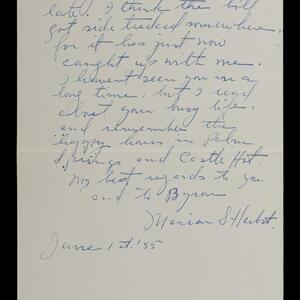 late. I think the bill
got side tracked somewhere,
for it has just now
caught up with me.
I haven't seen you in a
long time, but I read
about your busy life,
and remember the
happy hours in Palm
Springs and Castle Hot.
My best regards to you
and to Byron
Marian S Herbst.
June 1st. '55